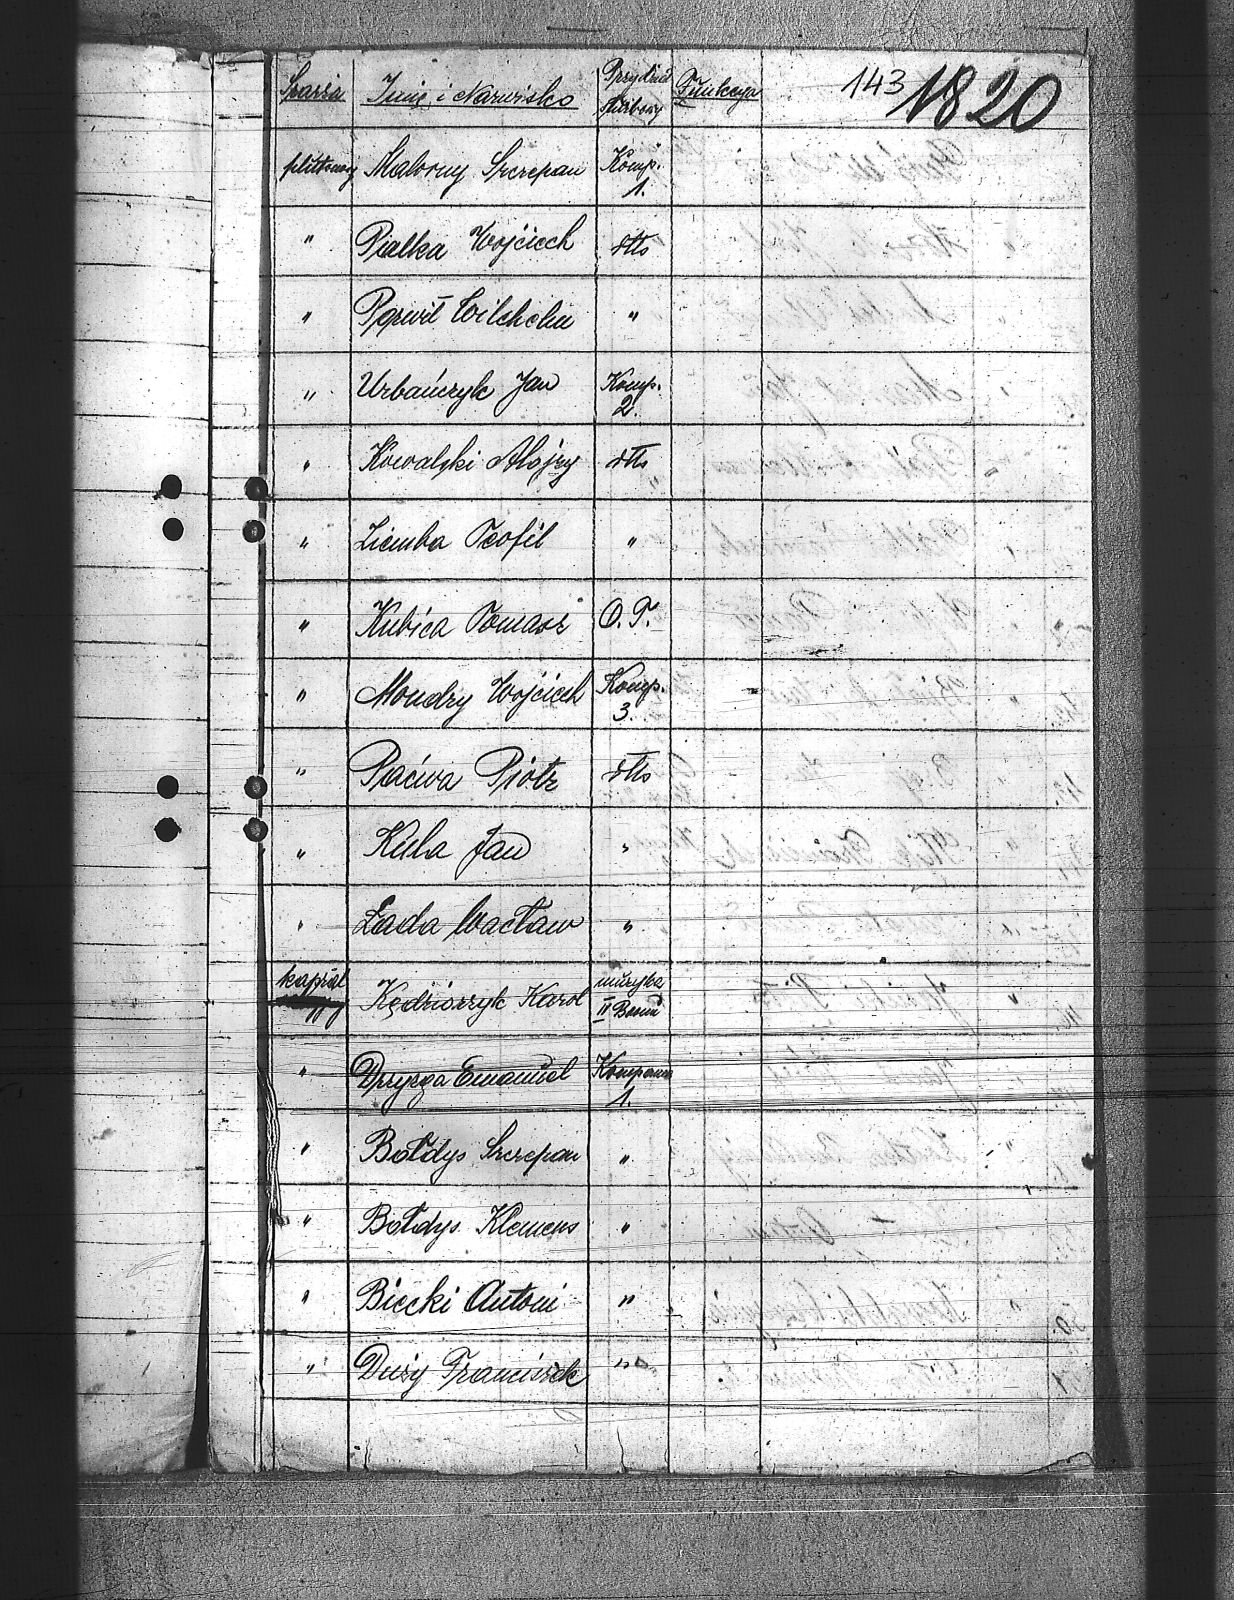 Szarża Imię i Nazwisko Przydział służbowy Funkcya 143 1820
plutonowy Malorny Szczepan Komp. 1.
" Pialka Wojciech dtto
" Porwit Wilehelm "
" Urbańczyk Jan Komp. 2.
" Kowalski Alojzy dtto
" Ziemba Teofil "
" Kubica Tomasz O.T.
" Mondry Wojciech Komp. 3.
" Paćwa Piotr dtto
" Kula Jan "
" Łada Wacław "
kapral Kędziorzyk Karol muzyka II Baonu
" Dzyrga Emanuel Kompania 1.
" Bołdys Szczepan "
" Bołdys Klemens "
" Biecki Antoni "
" Duży Franciszek "